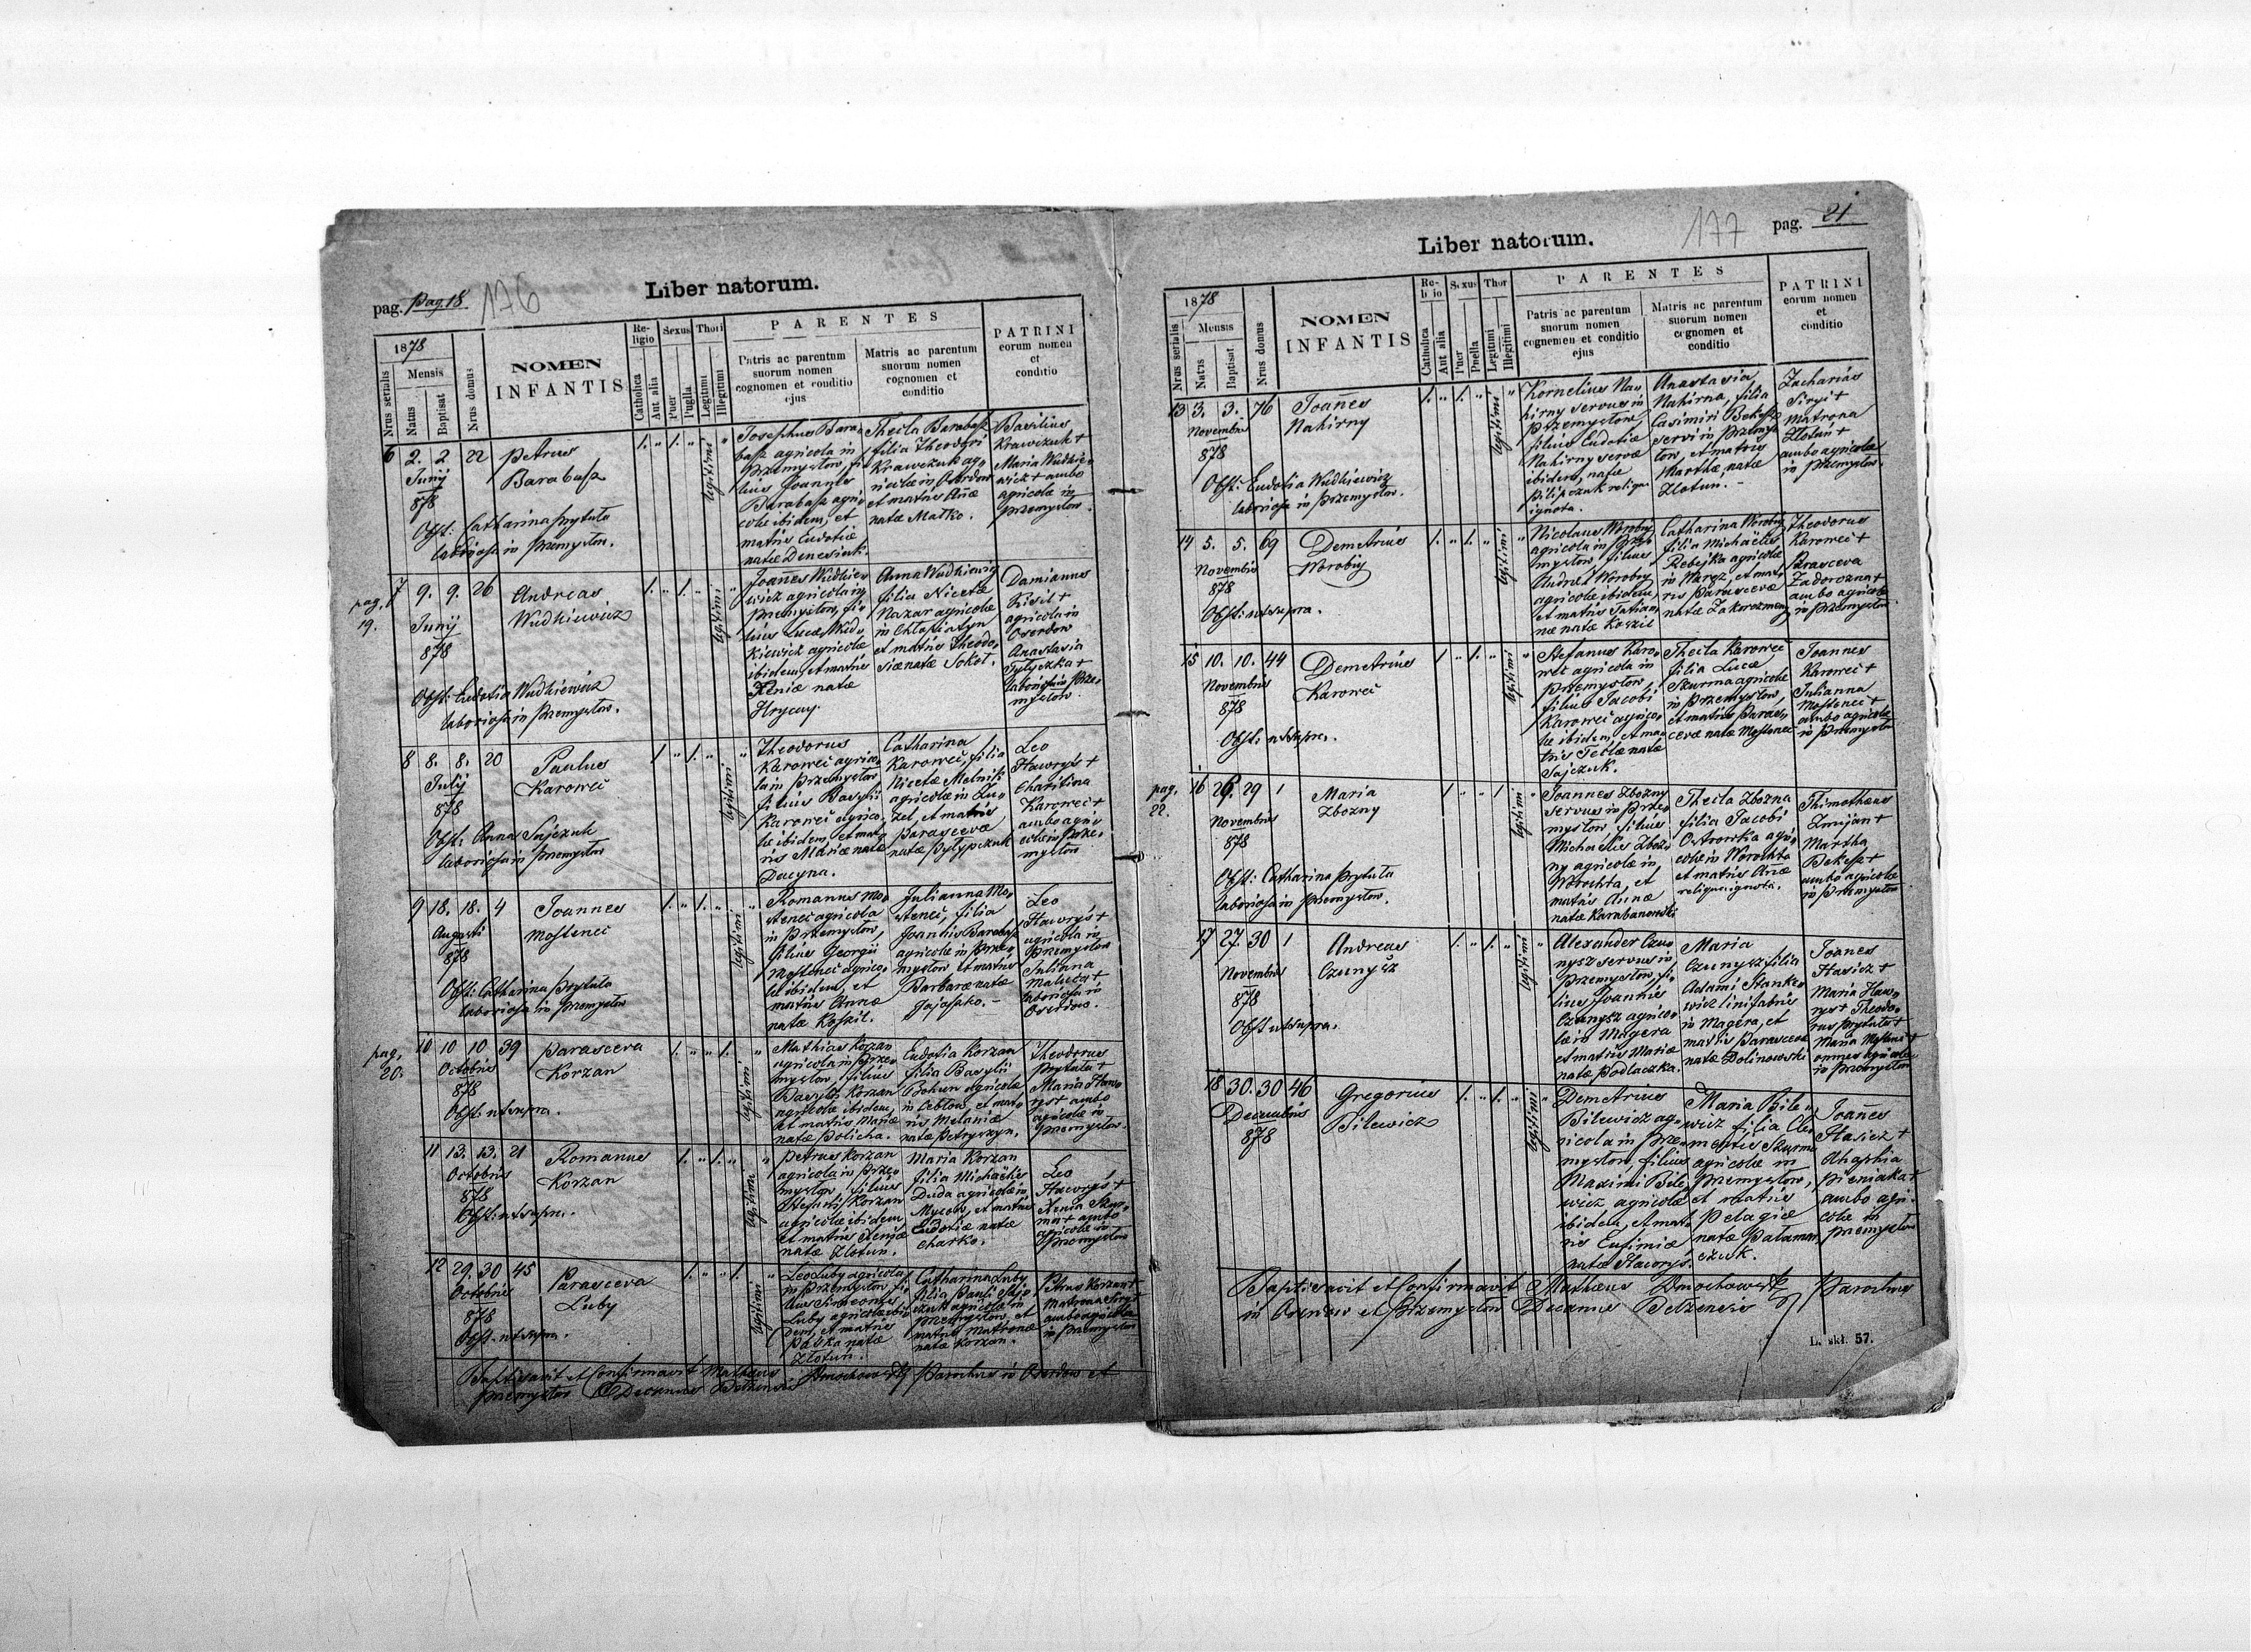 pag. Pag. 18
176
Liber natorum.
1878
Nrus serialis
Mensis
Natus
Baptisat
Nrus domus
NOMEN
INFANTIS
Religio
Catholica
Aut alia
Sexus
Puer
Puella
Thori
Legitimi
Illegitimi
PARENTES
Patris ac parentum
suorum nomen
cognomen et conditio
ejus
Matris ac parentum
suorum nomen
cognomen et
conditio
PATRINI
eorum nomen
et
conditio
6 2. 2 22 Petrus
Barabasz
Junij
878
Obst: Catharina Prytuła
laboriosa in Przemysłow.
legitimi
Josephus Bara-
basz agricola in
Przemysłow, fi-
lius Joannis
Barabasz agri-
colæ ibidem, et
matris Eudotiæ
natæ Denesiuk.
Thecla Barabasz
filia Theodori
Krawczuk ag-
ricolæ in Oserdow
et matris Añæ
natæ Matko.
Basilius
Krawczuk +
Maria Wudkie-
wicz + ambo
agricolæ in
Przemysłow.
pag.
19.
7 9. 9. 26 Andreas
Wudkiewicz
Junij
878
Obst: Eudotia Wudkiewicz
laboriosa in Przemysłow.
legitimi
Joañes Wudkie-
wicz agricola in
Przemysłow, fi-
lius Lucæ Wud-
kiewicz agricolæ
ibidem, et matris
Xeniæ natæ
Hrycay.
Anna Wudkiewicz
filia Nicetæ
Nazar agricolæ
in Chłopiatyn
et matris Theodo-
siæ natæ Sokoł.
Damianus
Kisil +
agricola in
Oserdow
Anastasia
Tytyczka +
laboriosa in Prze-
mysłow.
8 8. 8. 20 Paulus
Karoweć
Julij
878
Obst: Anna Sajczuk
laboriosa in Przemysłow
legitimi
Theodorus
Karoweć agrico-
la in Przemysłow
filius Basylii
Karoweć agrico-
læ ibidem, et mat-
ris Mariæ natæ
Dacyna.
Catharina
Karoweć, filia
Nicetæ Melnik
agricolæ in Żu-
żel, et matris
Parascevæ
natæ Pytypczuk
Leo
Hawryś +
Charitina
Karoweć +
ambo agri-
colæ in Prze-
mysłow
9 18. 18. 4 Joannes
Mosteneć
Augusti
878
Obst: Catharina Prytuła
laboriosa in Przemysłow
legitimi
Romanus Mo-
steneć agricola
in Przemysłow,
filius Georgii
Mosteneć agrico-
læ ibidem, et
matris Annæ
natæ Koszil.
Julianna Mo-
steneć, filia
Joannis Barabasz
agricolæ in Prze-
mysłow et matris
Barbaræ natæ
Leo
Hawryś +
agricola in
Przemysłow
Julianna
laboriosa in
Oserdow.
pag.
20.
10 10 10 39 Parasceva
Korzan
Octobris
878
Obst: ut supra.
legitimi
Mathias Korzan
agricola in Prze-
mysłow, filius
Basylii Korzan
agricolæ ibidem,
et matris Mariæ
natæ Policha.
Eudotia Korzan
filia Basylii
Bohun agricolæ
in Cebłow, et mat-
ris Melaniæ
natæ Petryszyn.
Theodorus
Prytuła +
Maria Haw-
ryś + ambo
agricolæ in
Przemysłow.
11 13. 13. 21 Romanus
Korzan
Octobris
878
Obst: ut supra.
legitimi
Petrus Korzan
agricola in Prze-
mysłow, filius
Stefani Korzan
agricolæ ibidem,
et matris Xeniæ
natæ Złotuń.
Maria Korzan
filia Michaëlis
Duda agricolæ in
Mycow, et matris
Eudotiæ natæ
Charko.
Leo
Hawryś +
Xenia Skur-
ma + ambo
agricolæ in
Przemysłow
12 29. 30 45 Parasceva
Luby
Octobris
878
Obst. ut supra.
legitimi
Leo Luby agricola
in Przemysłow, fi-
lius Simeonis
Luby agricolæ ibi-
dem, et matris
Paśka natæ
Złotuń.
Catharina Luby
filia Pauli Saj-
czuk agricolæ in
Przemysłow, et
matris Matronæ
natæ Korzan.
Petrus Korzan +
Matrona Siryi +
ambo agricolæ
in Przemysłow
Baptisavit et Confirmavit Matheus Dmochowsky Parochus in Oserdow et
Przemysłow Decanus Bełzensis
177
pag. 21
Liber natorum.
1878
Nrus serialis
Mensis
Natus
Baptisat
Nrus domus
NOMEN
INFANTIS
Religio
Catholica
Aut alia
Sexus
Puer
Puella
Thori
Legitimi
Illegitimi
PARENTES
Patris ac parentum
suorum nomen
cognomen et conditio
ejus
Matris ac parentum
suorum nomen
cognomen et
conditio
PATRINI
eorum nomen
et
conditio
13 3. 3. 76 Joañes
Nahirny
Novembris
878
Obst: Eudotia Wudkiewicz
laboriosa in Przemysłow.
legitimi
Kornelius Na-
hirny servus in
Przemysłow,
filius Eudotiæ
Nahirny servæ
ibidem, natæ
Pilipczuk reliqua
ignota.
Anastasia
Nahirna, filia
Casimiri Bekesz
servi in Przemys-
łow, et matris
Marthæ natæ
Złotun. -
Zacharias
Siryi +
Matrona
Złotuń +
ambo agricolæ
in Przemysłow.
14 5. 5. 69 Demetrius
Worobij
Novembris
878
Obst: ut supra.
legitimi
Nicolaus Worobij
agricola in Prze-
mysłow, filius
Andreæ Worobij
agricolæ ibidem,
et matris Tatian-
næ natæ Koszil
Catharina Worobij
filia Michaëlis
Rebejka agricolæ
in Waręz, et mat-
ris Parascevæ
natæ Zakorczmeny
Theodorus
Karoweć +
Parasceva
Zadorozna +
ambo agricolæ
in Przemysłow
15 10. 10. 44 Demetrius
Karoweć
Novembris
878
Obst: ut supra.
legitimi
Stefanus Karo-
weć agricola in
Przemysłow,
filius Jacobi
Karoweć agrico-
læ ibidem, et ma-
tris Teclæ natæ
Sajczuk.
Thecla Karoweć
filia Lucæ
Skurma agricolæ
in Przemysłow,
et matris Paras-
cevæ natæ Mosteneć
Joannes
Karoweć +
Julianna
Mosteneć +
ambo agricolæ
in Przemysłow
pag.
22.
16 29. 29 1 Maria
Zbozny
Novembris
878
Obst: Catharina Prytuła
laboriosa in Przemysłow.
legitimi
Joannes Zbozny
servus in Prze-
mysłow, filius
Michaelis Zboz-
ny agricolæ in
Worochta, et
matris Annæ
natæ Karabanowski
Thecla Zbozna
filia Jacobi
Ostrowka agri-
colæ in Worochta
et matris Añæ
reliqua ignota.
Thimotheus
Zmijan +
Martha
Bekesz +
ambo agricolæ
in Przemysłow
17 27. 30 1 Andreas
Czunyśz
Novembris
878
Obst ut supra.
legitimi
Alexander Czu-
nysz servus in
Przemysłow, fi-
lius Joannis
Czunysz agrico-
læ in Magera
et matris Mariæ
natæ Podlaczka.
Maria
Czunysz filia
Adami Stanke-
wicz linifabris
in Magera, et
matris Parascevæ
natæ Dolinowski
Joanes
Hasicz +
Maria Haw-
ryś + Theodo-
rus Prytuła +
Maria Mosteneć +
omnes agricolæ
in Przemysłow
18 30. 30 46 Gregorius
Bilewicz
Decembris
878
legitimi
Demetrius
Bilewicz ag-
ricola in Prze-
mysłow, filius
Maximi Bile-
wicz agricolæ
ibidem, et mat-
ris Eufimiæ
natæ Hawryś.
Maria Bile-
wicz filia Cle-
mentis Skurma
agricolæ in
Przemysłow,
et matris
Pelagiæ
natæ Pałamar-
czuk.
Joañes
Hasicz +
Ahaphia
Pieniaka +
ambo agri-
colæ in
Przemysłow
Baptisavit et Confirmavit Matheus Dmochowsky Parochus
in Oserdow et Przemysłow Decanus Bełzensis
D. skł. 57.